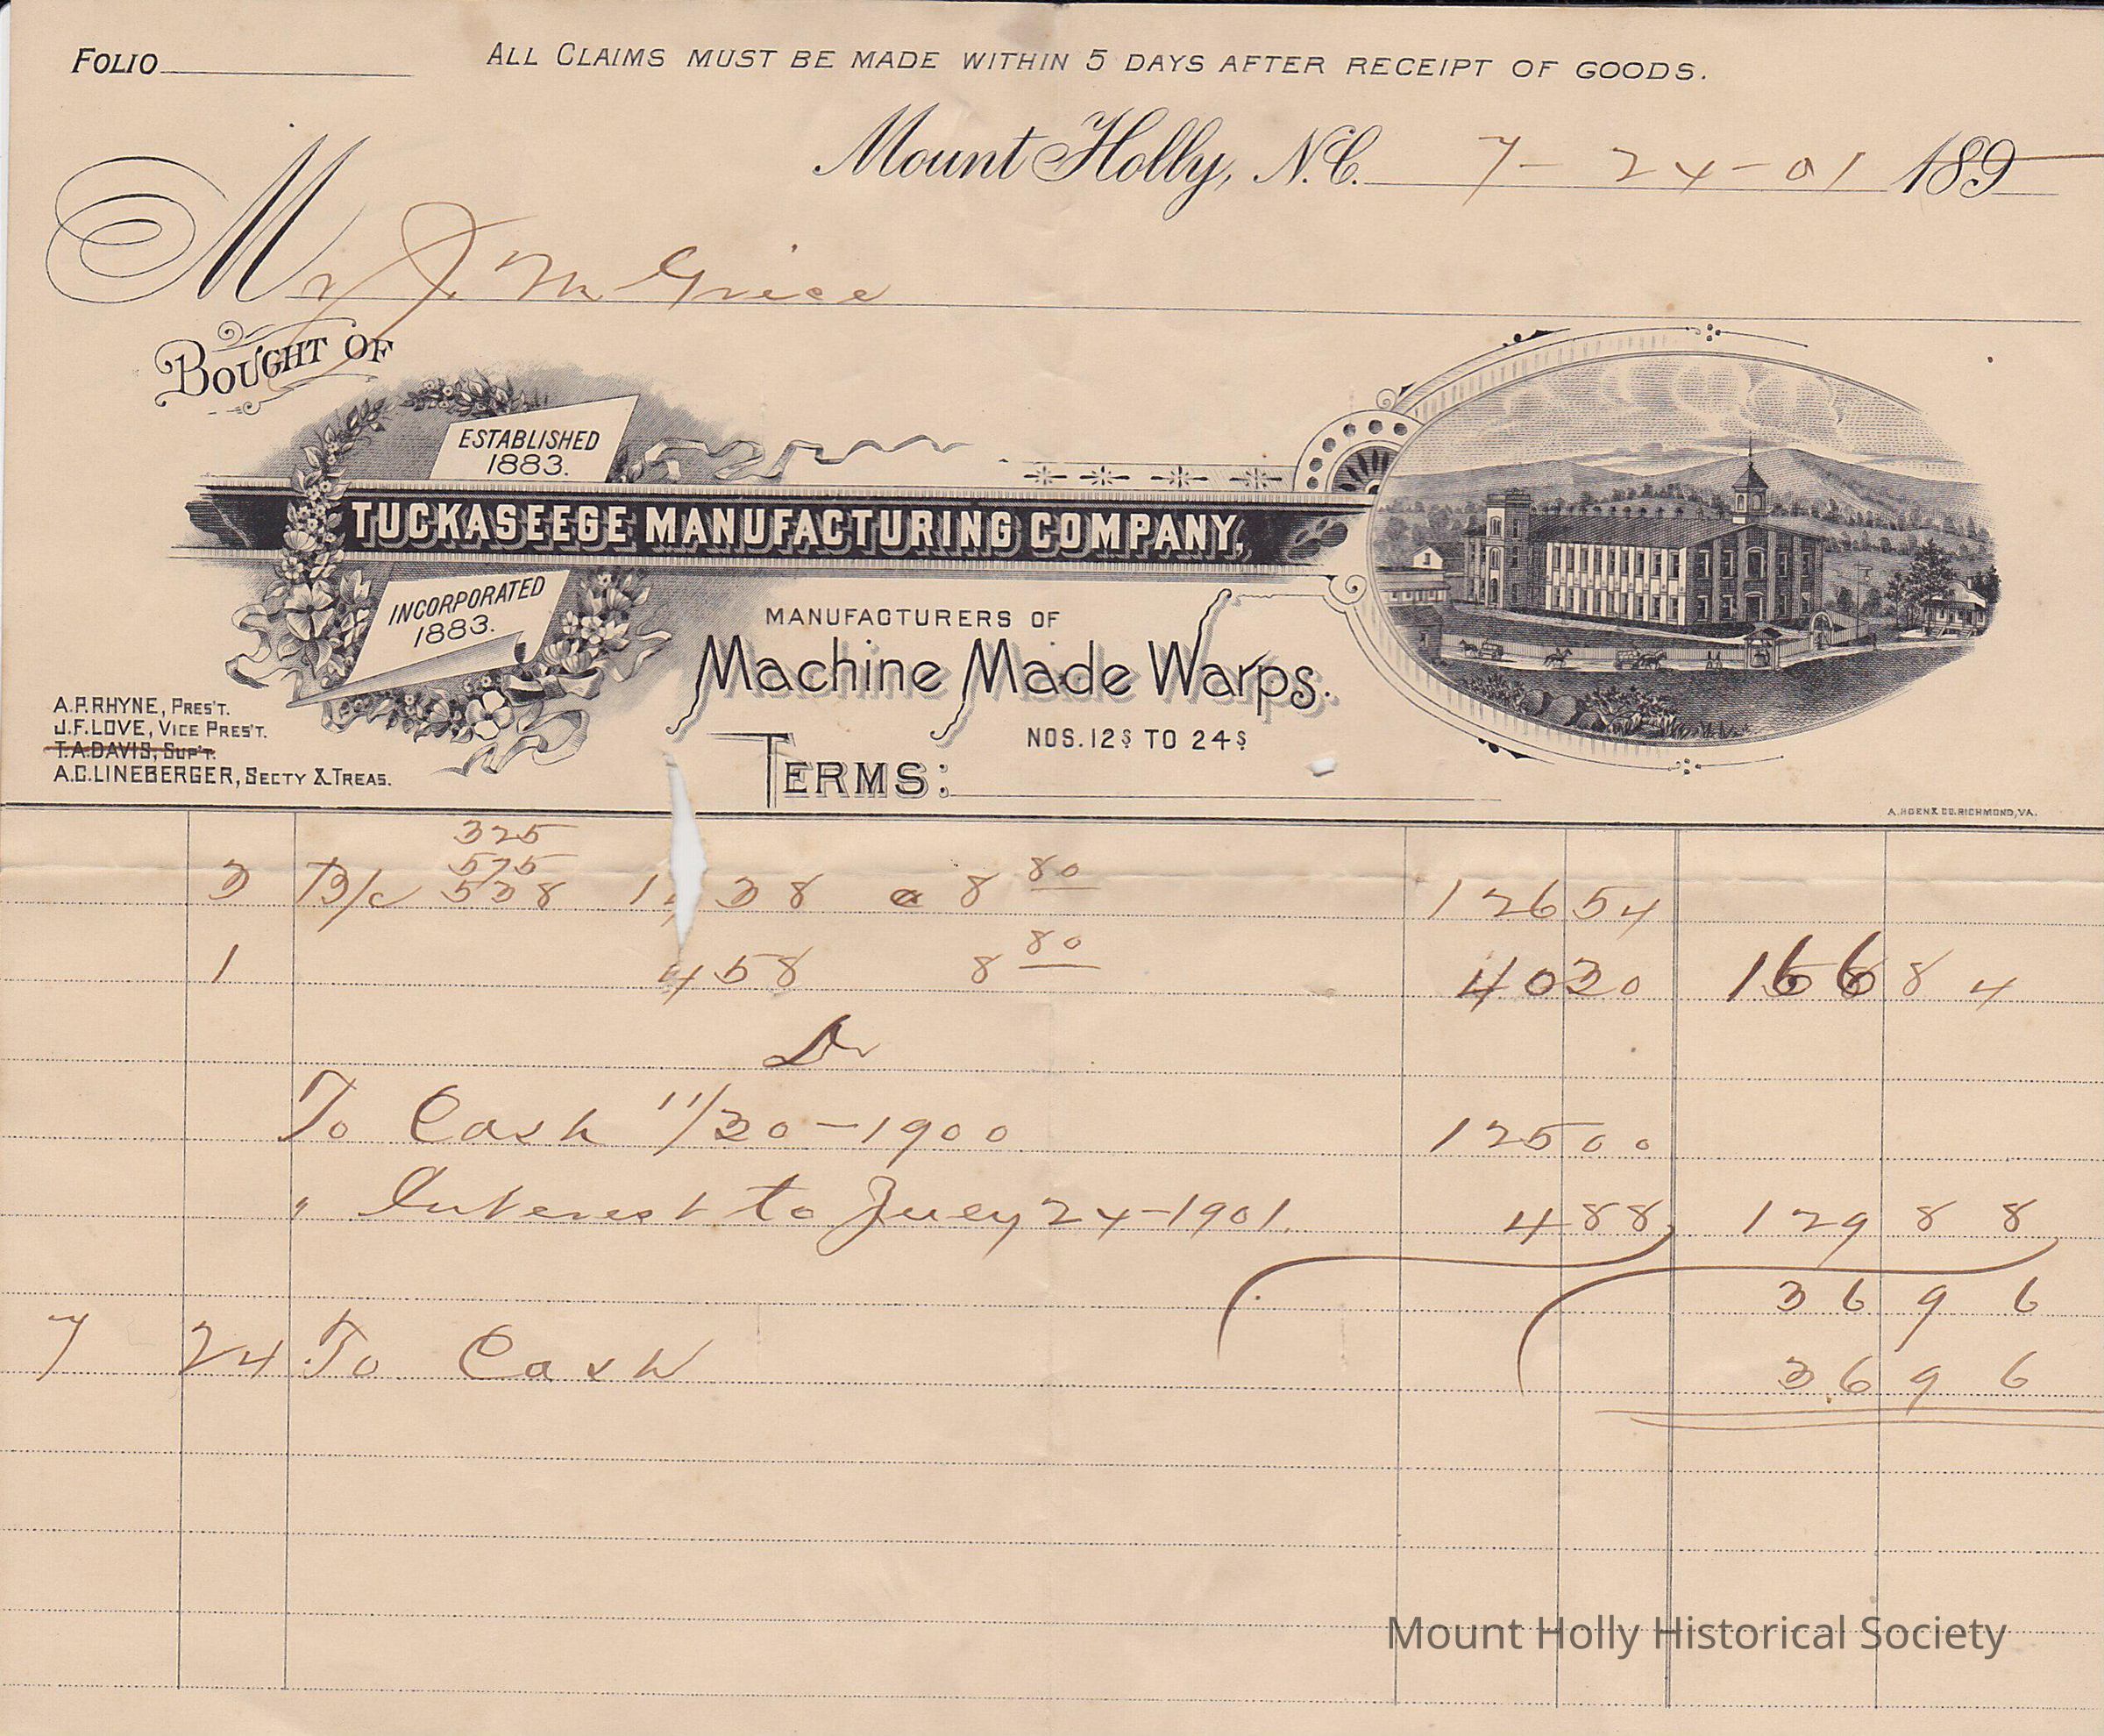 FOLIO
ALL CLAIMS MUST BE MADE WITHIN 5 DAYS AFTER RECEIPT OF GOODS.
Mount Holly, N.C. 7-24-01 189
Mr J. M Grice
BOUGHT OF
ESTABLISHED
1883.
TUCKASEEGE MANUFACTURING COMPANY,
INCORPORATED
1883.
MANUFACTURERS OF
Machine Made Warps.
NOS. 12S TO 24S
A.P. RHYNE, PRES'T.
J.F. LOVE, VICE PRES'T.
T.A. DAVIS, SUP'T.
A.C. LINEBERGER, SECTY & TREAS.
TERMS:
A. HOEN & CO. RICHMOND, VA.
325
575
3 B/c 538 1438 @ 8 80 126 54
1 458 8 80 40 30 166 84
Dr
To Cash 11/30-1900 125 00
" Interest to July 24-1901. 4 88 129 88
36 96
7 24 To Cash 36 96
Mount Holly Historical Society